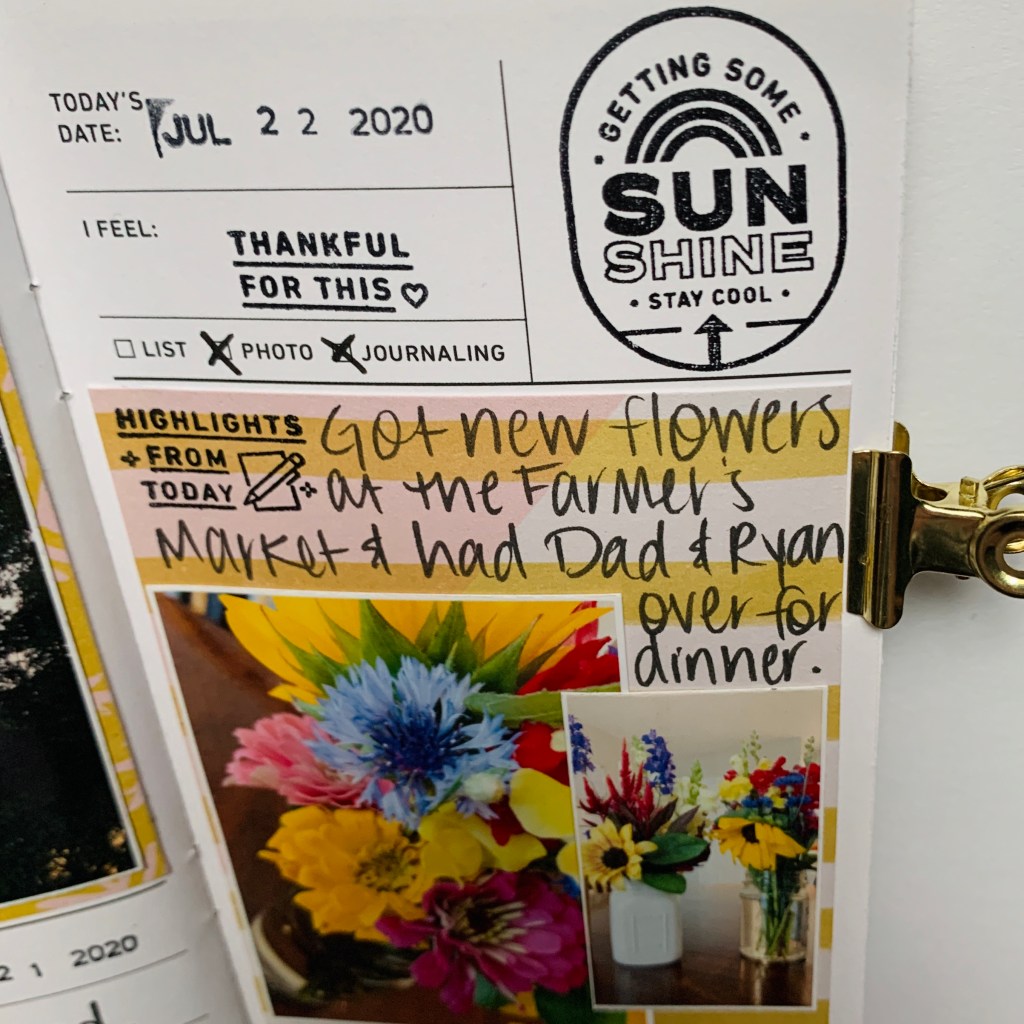 TODAY'S
DATE: JUL 22 2020
I FEEL:
THANKFUL
FOR THIS
LIST PHOTO JOURNALING
GETTING SOME
SUN
SHINE
STAY COOL
HIGHLIGHTS
FROM
TODAY
Got new flowers
at the Farmer's
Market & had Dad & Ryan
over for
dinner.
21 2020